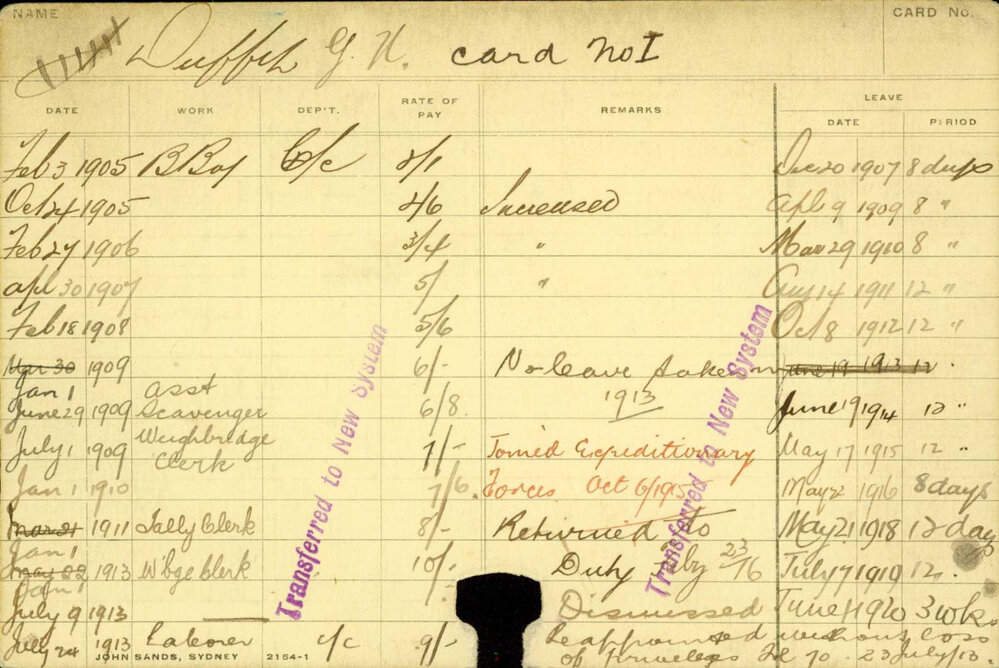 NAME
CARD No.
G. N. Card No I
DATE WORK DEP'T. RATE OF PAY REMARKS LEAVE DATE PERIOD
Feb 3 1905 B Boy C/c 2/1 Dec 20 1907 8 days
Oct 24 1905 2/6 Increased Apl 9 1909 8 "
Feb 27 1906 3/4 " Mar 29 1910 8 "
Apl 30 1907 5/ " Aug 14 1911 12 "
Feb 18 1908 5/6 Oct 8 1912 12 "
Mar 30 1909 6/- No leave taken June 19 1913 12 "
Jan 1 Asst 1913
June 29 1909 Scavenger 6/8 June 19 1914 12 "
July 1 1909 Weighbridge Clerk 7/- Joined Expeditionary May 17 1915 12 "
Jan 1 1910 7/6 Forces. Oct 6/1915 May 22 1916 8 days
Mar 21 1911 Tally Clerk 8/- Returned to May 21 1918 12 day
Jan 1
May 22 1913 W'bge Clerk 10/- Duty Feby 23/16 July 17 1919 12 "
Jan 1
July 9 1913 Dismissed June 11 1920 3 wks
July 24 1913 Laborer C/c 9/- Reappointed without loss
of privileges 23 July/13.
Transferred to New System
Transferred to New System
JOHN SANDS, SYDNEY 2154-1